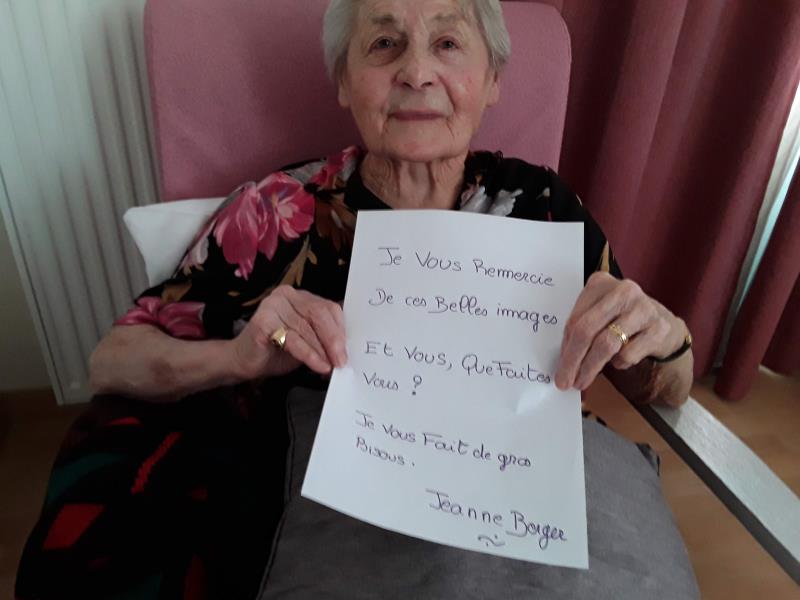 Je Vous Remercie
De ces Belles images
Et Vous, Que Faites
Vous ?
Je Vous Fait de gros
Bisous.
Jeanne Borger